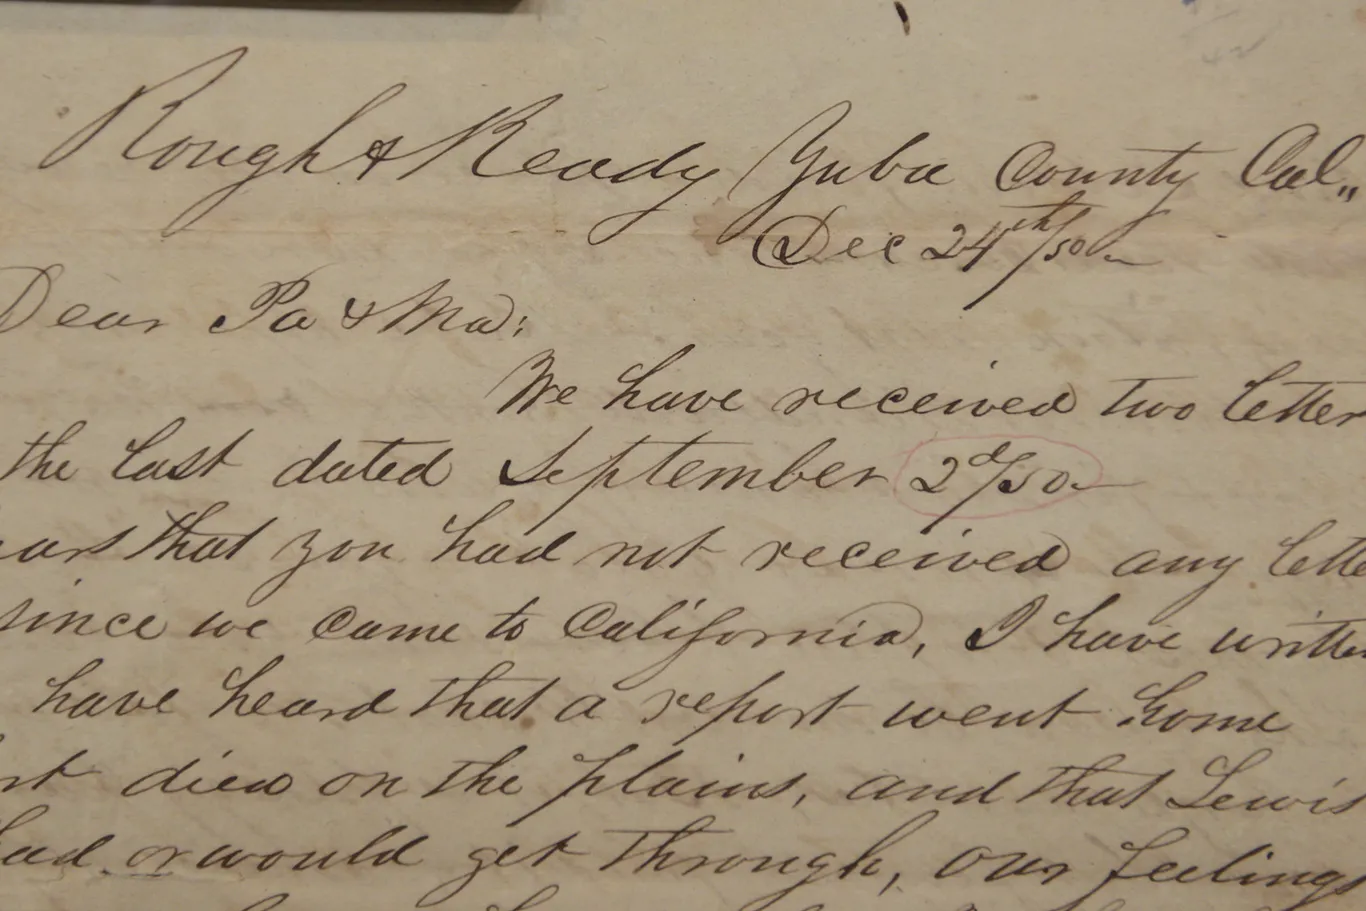 Rough & Ready Yuba County Cal,,
Dec 24th/50
Dear Pa & Ma:
We have received two letter
the last dated September 2d/50
that you had not received any lette
since we came to California, I have writte
have heard that a report went home
died on the plains, and that Lewis
had or would get through, our feelings